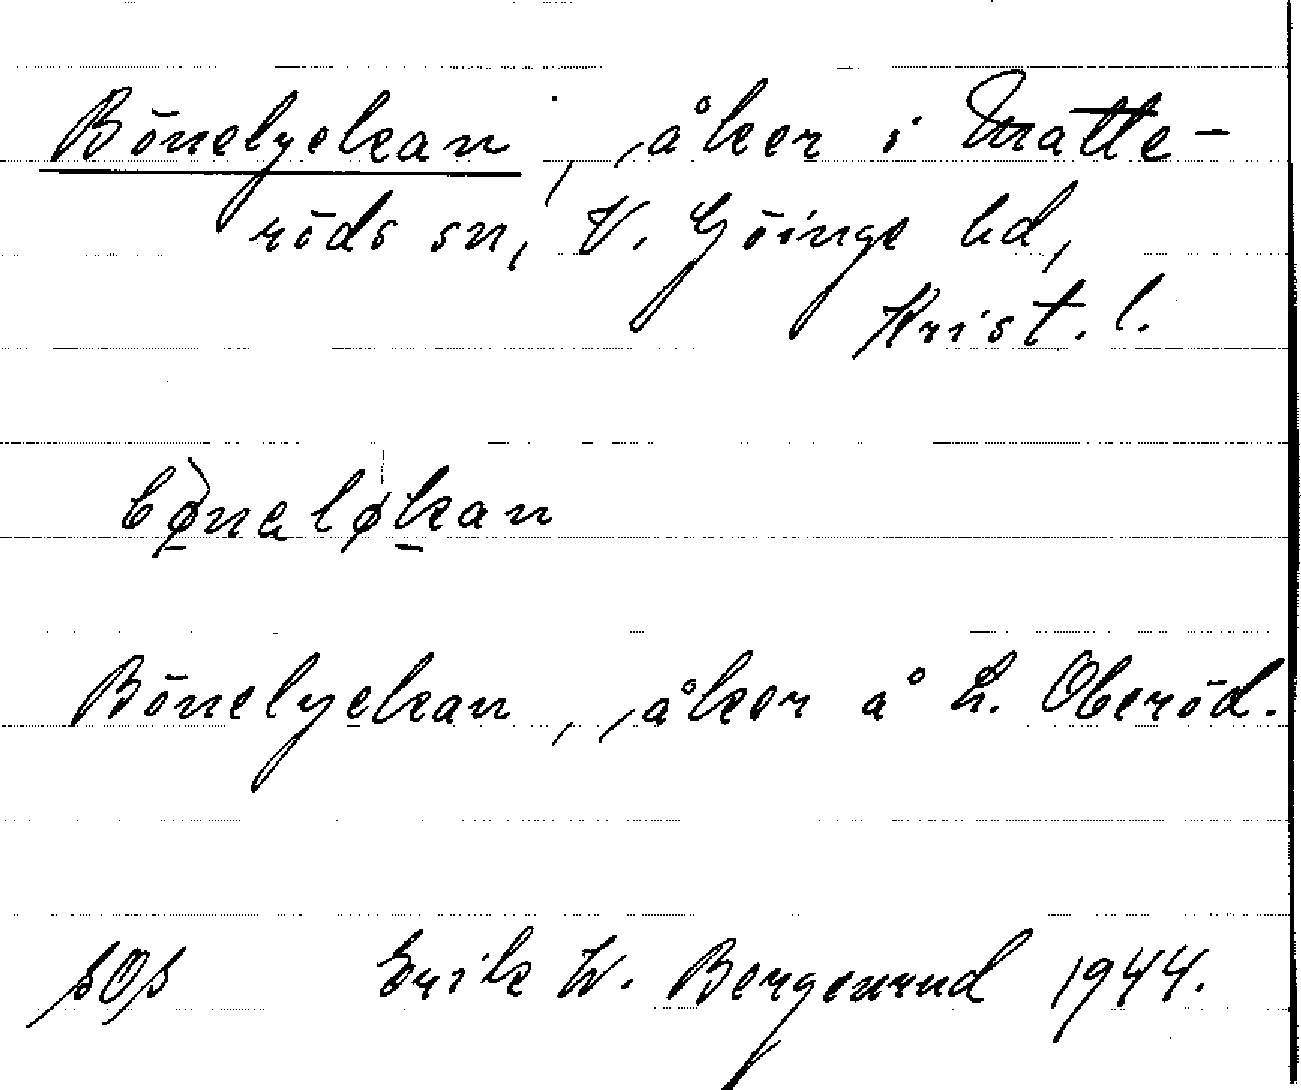 Bönelyckan, åker i Matte-
röds sn, V. Göinge hd,
Krist. l.
bø̱nalø̱kan
Bönelyckan, åker å L. Oberöd.
sOs Erik W. Bergenrud 1944.